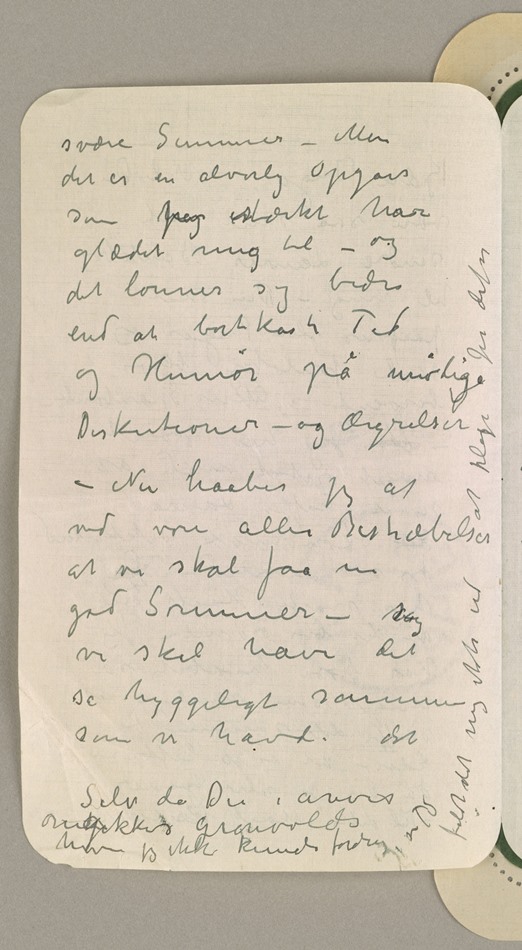 svære Sommer – Men
det er en alvorlig Opgave
som jeg stærkt har
glædet mig til – og
det lønner sig bedre
end at bortkaste Tid
og Humør på unødige
Diskutioner – og Ærgrelser
– Nu haaber jeg at
ved vore alles Bestræbelser
at vi skal faa en
god Sommer – og
vi skal have det
så hyggeligt sammen
som vi havde det
Selv da Du i
Grønvolds
jeg ikke kunde fordrag
det mig ikke ved at plage Jer